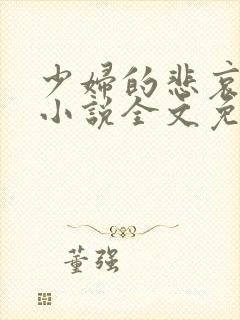 少婦的悲哀
小說全文免
董强